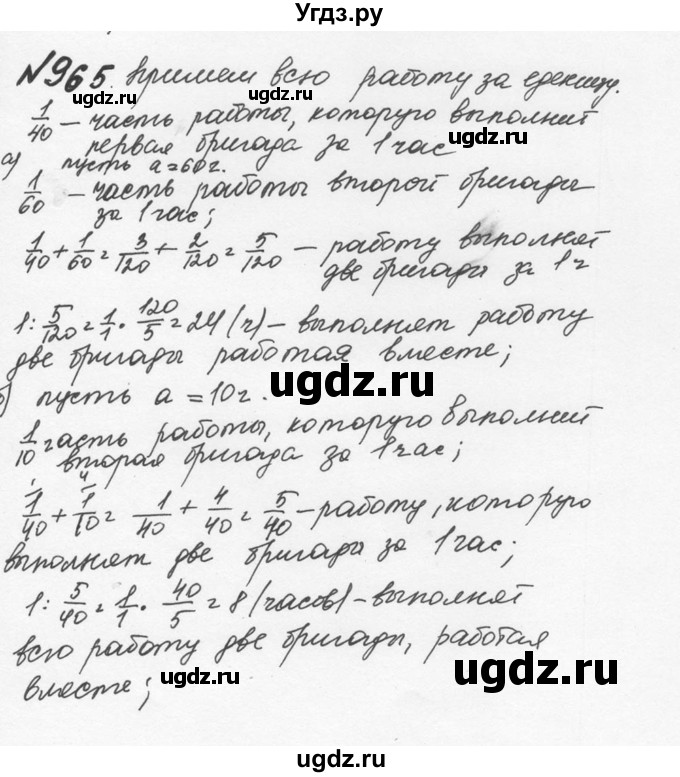 Угдз.ру
№965. Примем всю работу за единицу.
ugdz.ru ugdz.ru
1/40 – часть работы, которую выполнит
первая бригада за 1 час
а) пусть a = 60 г.
1/60 – часть работы второй бригады
за 1 час;
ugdz.ru ugdz.ru
1/40 + 1/60 = 3/120 + 2/120 = 5/120 – работу выполнят
две бригады за 1 ч
1 : 5/120 = 1/1 · 120/5 = 24 (ч) – выполнят работу
ugdz.ru
две бригады работая вместе;
ugdz.ru
б) пусть a = 10 г.
1/10 часть работы, которую выполнит
вторая бригада за 1 час;
ugdz.ru ugdz.ru
1/40 + 1/10 (4 = 1/40 + 4/40 = 5/40 – работу, которую
выполнят две бригады за 1 час;
ugdz.ru
1 : 5/40 = 1/1 · 40/5 = 8 (часов) – выполнят
всю работу две бригады, работая
ugdz.ru ugdz.ru
вместе;
ugdz.ru